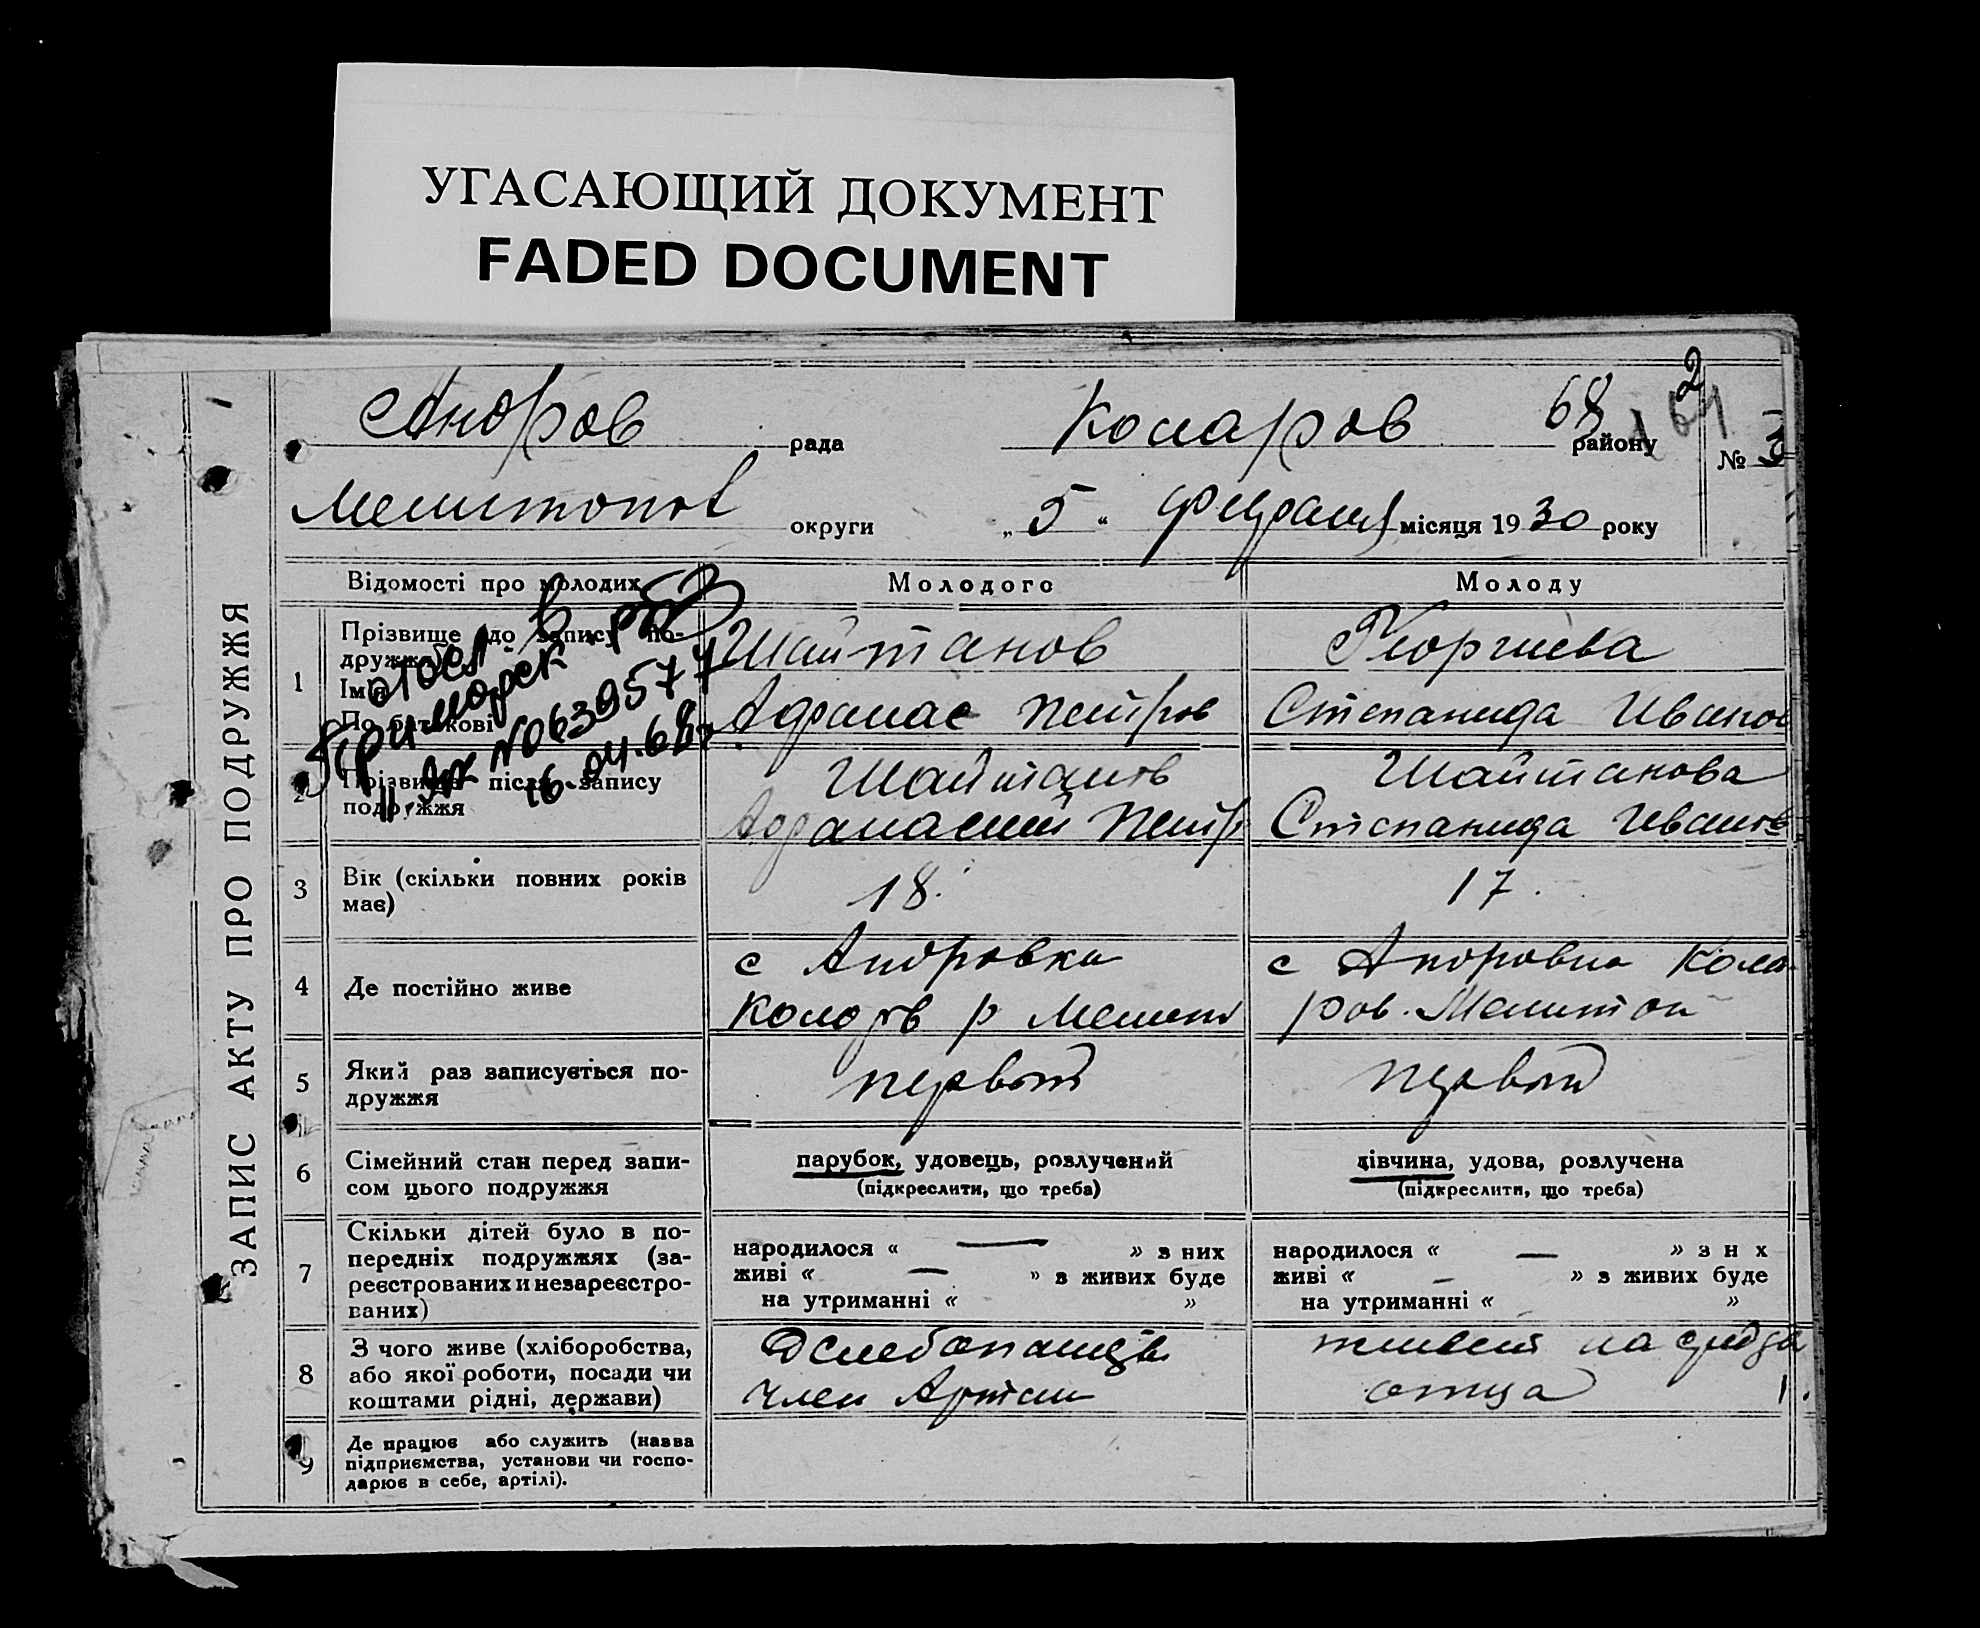 УГАСАЮЩИЙ ДОКУМЕНТ
FADED DOCUMENT
68 2
Андров рада Коларов району № 3
Мелитопол округи „ 5 “ февраля місяця 1930 року
ЗАПИС АКТУ ПРО ПОДРУЖЖЯ
Відомості про молодих Молодого Молоду
1 Прізвище до запису по-
дружжя Шайтанов Георгиева
Ім'я
По батькові Афанас Петров Степанида Иванов
Приморск
№ 0639577
16.04.68
2 Прізвище після запису Шайтанов Шайтанова
подружжя Афанасий Петр Степанида Иванов
3 Вік (скільки повних років
має) 18. 17.
4 Де постійно живе
с Андровка с Андровка Кола-
Коларв р Мелит ров. Мелитоп
5 Який раз записується по-
дружжя первый первый
6 Сімейний стан перед запи-
сом цього подружжя
парубок, удовець, розлучений дівчина, удова, розлучена
(підкреслити, що треба) (підкреслити, що треба)
7 Скільки дітей було в по-
передніх подружжях (за-
реєстрованих и незареєстро-
ваних)
народилося « — » з них народилося « — » з н х
живі « — » з живих буде живі « — » з живих буде
на утриманні « » на утриманні « »
8 З чого живе (хліборобства,
або якої роботи, посади чи
коштами рідні, держави)
член Артели на
отца
9 Де працює або служить (назва
підприємства, установи чи госпо-
дарює в себе, артілі).